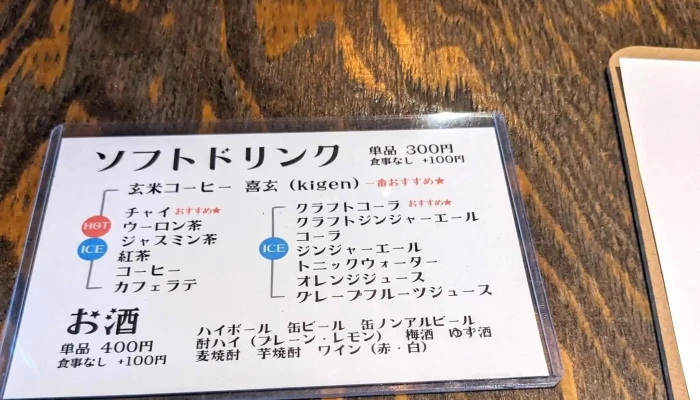 ソフトドリンク 単品 300円
食事なし +100円
玄米コーヒー 喜玄 (kigen) 一番おすすめ★
HOT
ICE
チャイ おすすめ★
ウーロン茶
ジャスミン茶
紅茶
コーヒー
カフェラテ
ICE
クラフトコーラ おすすめ★
クラフトジンジャーエール
コーラ
ジンジャーエール
トニックウォーター
オレンジジュース
グレープフルーツジュース
お酒
単品 400円
食事なし +100円
ハイボール 缶ビール 缶ノンアルビール
酎ハイ (プレーン・レモン) 梅酒 ゆず酒
麦焼酎 芋焼酎 ワイン (赤・白)